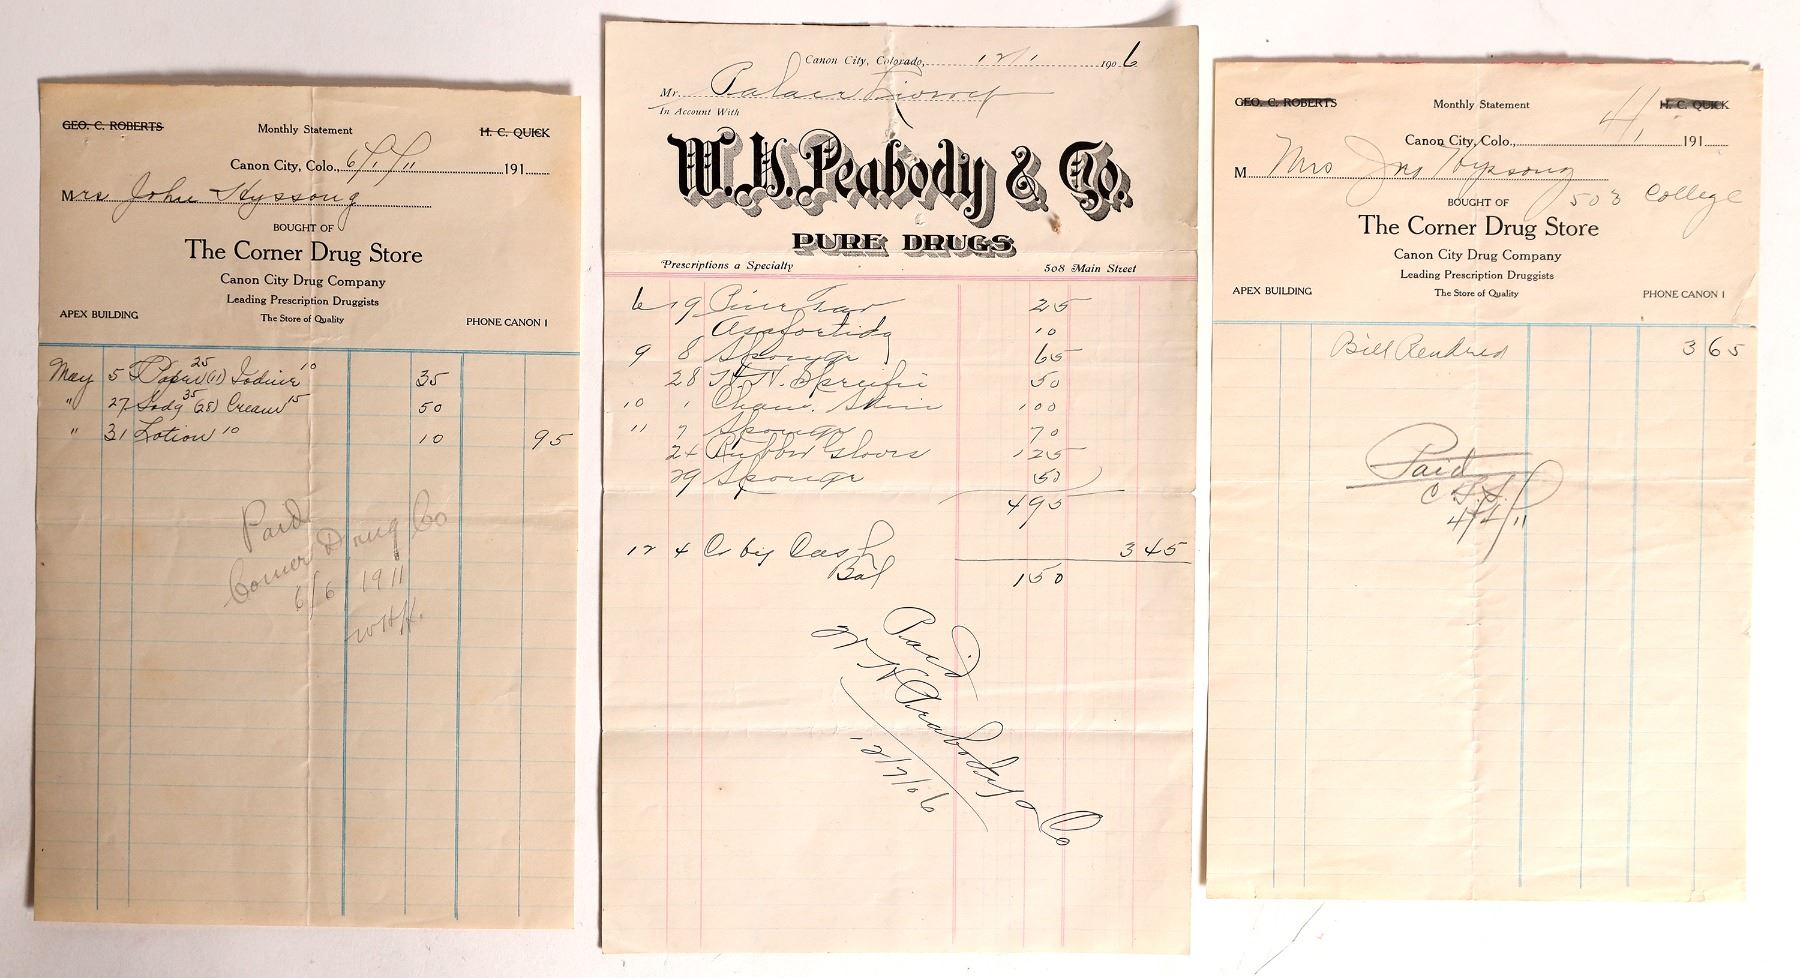 GEO. C. ROBERTS
Monthly Statement
H. C. QUICK
Canon City, Colo., 6/1/11 191
Mrs John Hyssong
BOUGHT OF
The Corner Drug Store
Canon City Drug Company
Leading Prescription Druggists
The Store of Quality
APEX BUILDING
PHONE CANON 1
May 5 Paper (11) 25 Iodine 10 35
" 27 Sody 35 (28) Cream 15 50
" 31 Lotion 10 10 95
Paid
Corner Drug Co
6/6 1911
WHH.
Canon City, Colorado, 12/1 1906
Mr. Palace Livery
In Account With
W. H. Peabody & Co.
PURE DRUGS
Prescriptions a Specialty
508 Main Street
6 19 Pine Tar 25
Asafortidy 10
9 8 Sponge 65
28 H. H. Specific 50
10 1 Cham. Skin 100
11 7 Sponge 70
24 Rubber Gloves 125
29 Sponge 50
495
12 4 Cr by Cash 345
Bal 150
Paid
W H Peabody & Co
12/7/06
GEO. C. ROBERTS
Monthly Statement
H. C. QUICK
Canon City, Colo., 4/1 191
Mrs Jno Hyssong
503 College
BOUGHT OF
The Corner Drug Store
Canon City Drug Company
Leading Prescription Druggists
The Store of Quality
APEX BUILDING
PHONE CANON 1
Bill Rendred 365
Paid
C. D. S.
4/4/11